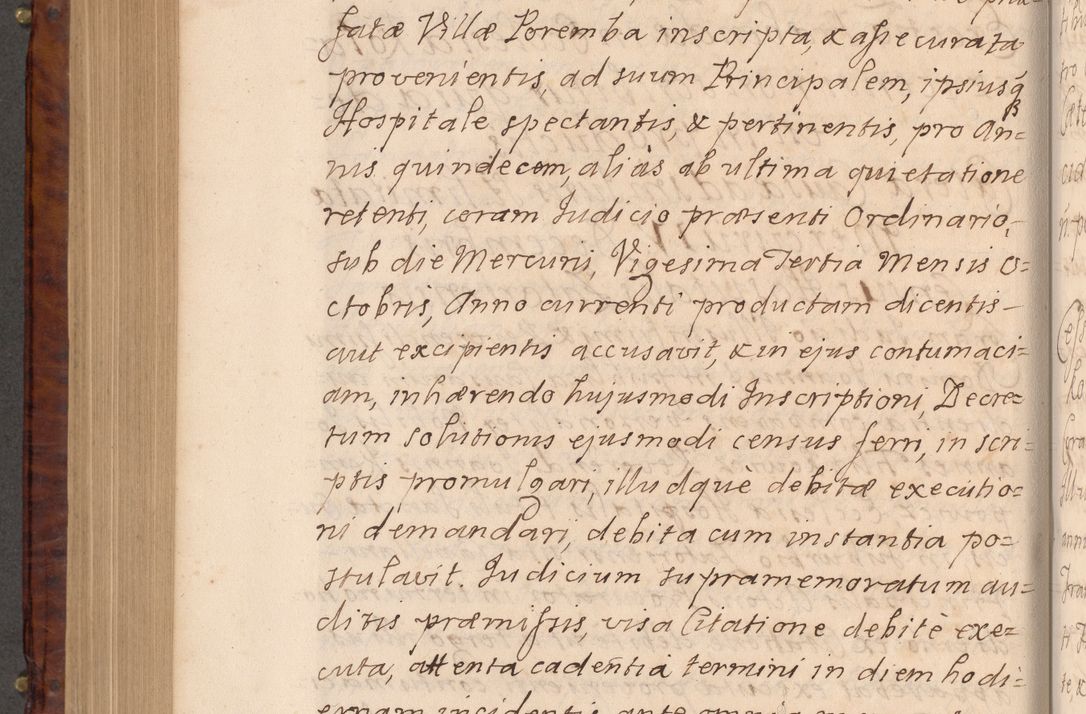 fatæ Villæ Poremba inscripta, & assecurata
provenientis, ad suum Principalem, ipsiusq̃
Hospitale spectantis, & pertinentis, pro An=
nis quindecem, aliàs ab ultima quietatione
retenti, coram Judicio præsenti Ordinario,
sub die Mercurii, Vigesima Tertia Mensis O=
ctobris, Anno currenti productam dicentis
aut excipientis accusavit, & in ejus contumaci=
am, inhærendo hujusmodi Inscriptioni, Decre=
tum solutionis ejusmodi census ferri, in scri=
ptis promulgari, illudquè debitæ executio=
ni demandari, debita cum instantia po=
stulavit. Judicium supramemoratum au=
ditis præmissis, visa Citatione debitè exe=
cuta, attenta cadentia termini in diem hodi=
ernam incidentis ante omnia